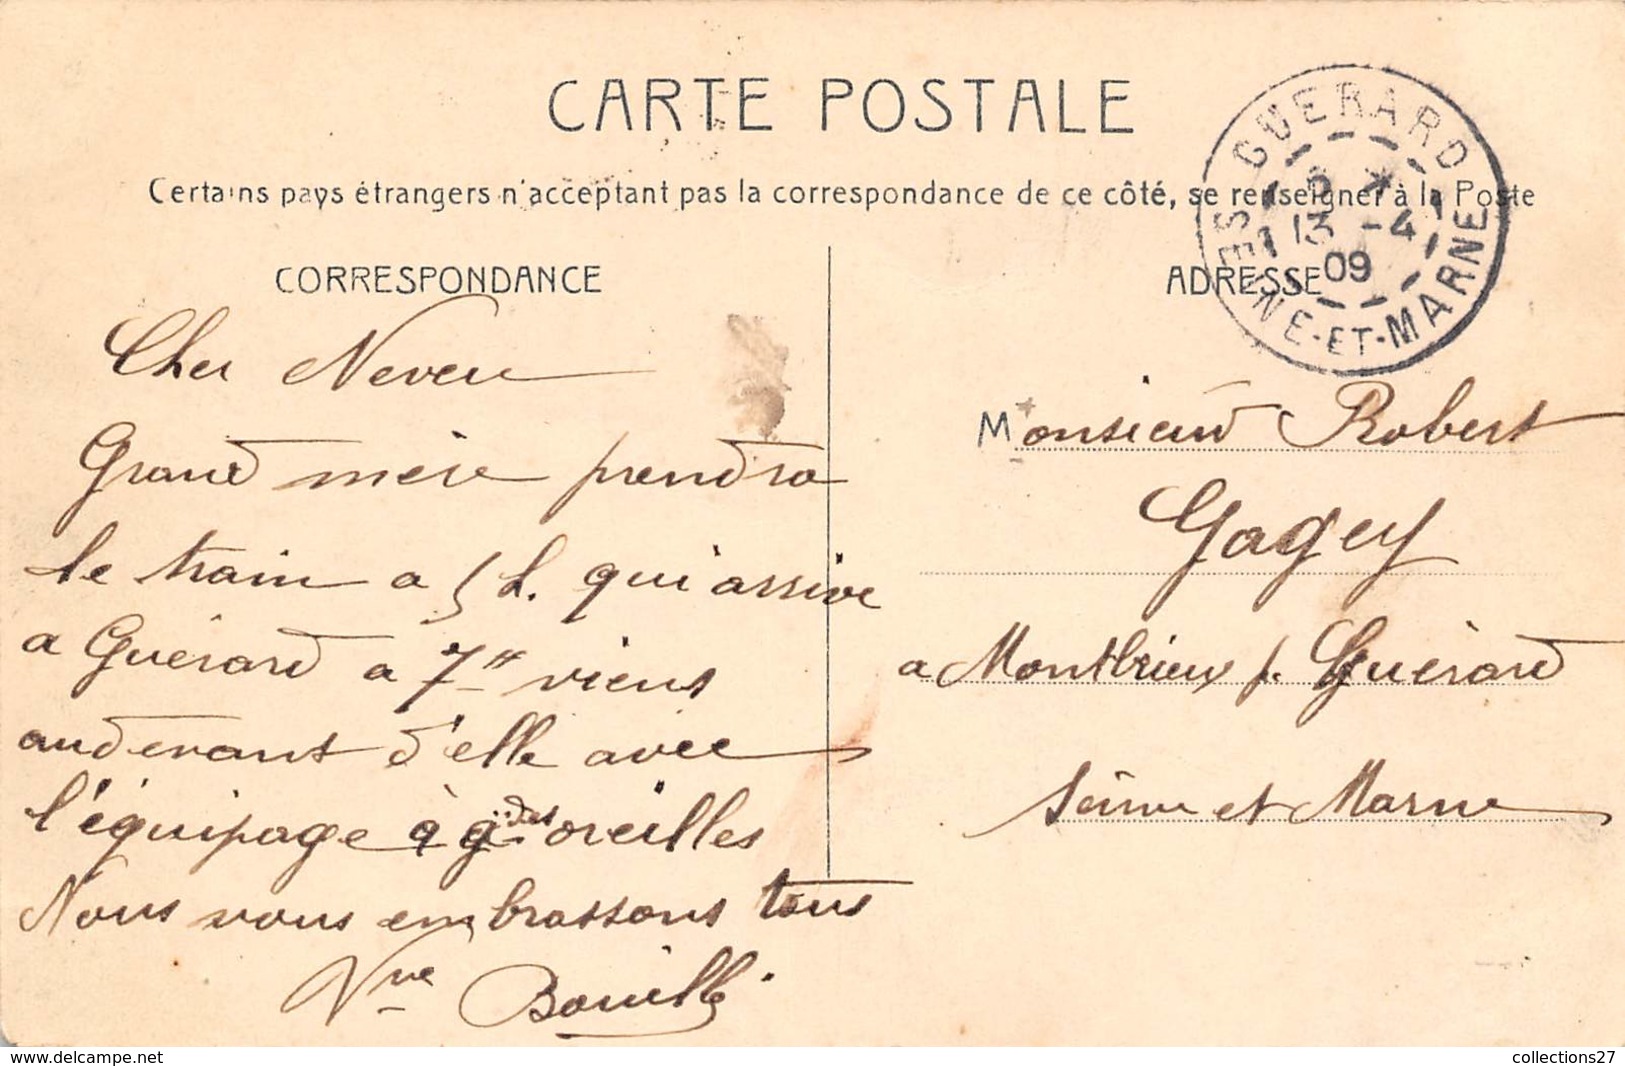 CARTE POSTALE
Certains pays étrangers n'acceptant pas la correspondance de ce côté, se renseigner à la Poste
CORRESPONDANCE
Cher Neveu
Grand mère prendra
le train a 5 h. qui arrive
a Guérard a 7 viens
au devant d'elle avec
l'équipage à gdes oreilles
Nous vous embrassons tous
Vve Bouillé
ADRESSE
GUERARD
SEINE-ET-MARNE
13 -4
09
Monsieur Robert
Gagey
a Montbrieux p. Guérard
Seine et Marne
collections27